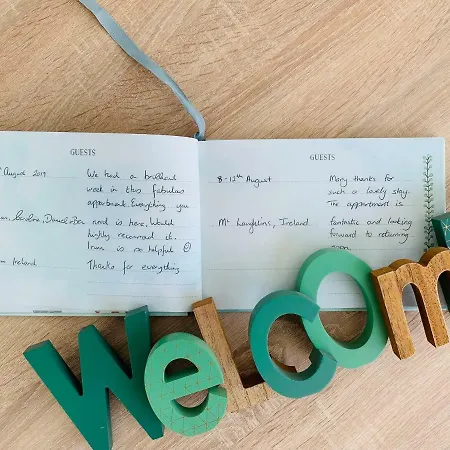 GUESTS
August 2019
We had a brilliant
week in this fabulous
appartment. Everything you
need is here. Would
highly recommend it.
is so helpful ☺
Thanks for everything
Ireland
GUESTS
8-12th August
Mc Laughlins, Ireland
Many thanks for
such a lovely stay.
The appartment is
fantastic and looking
forward to returning
soon
Welcom